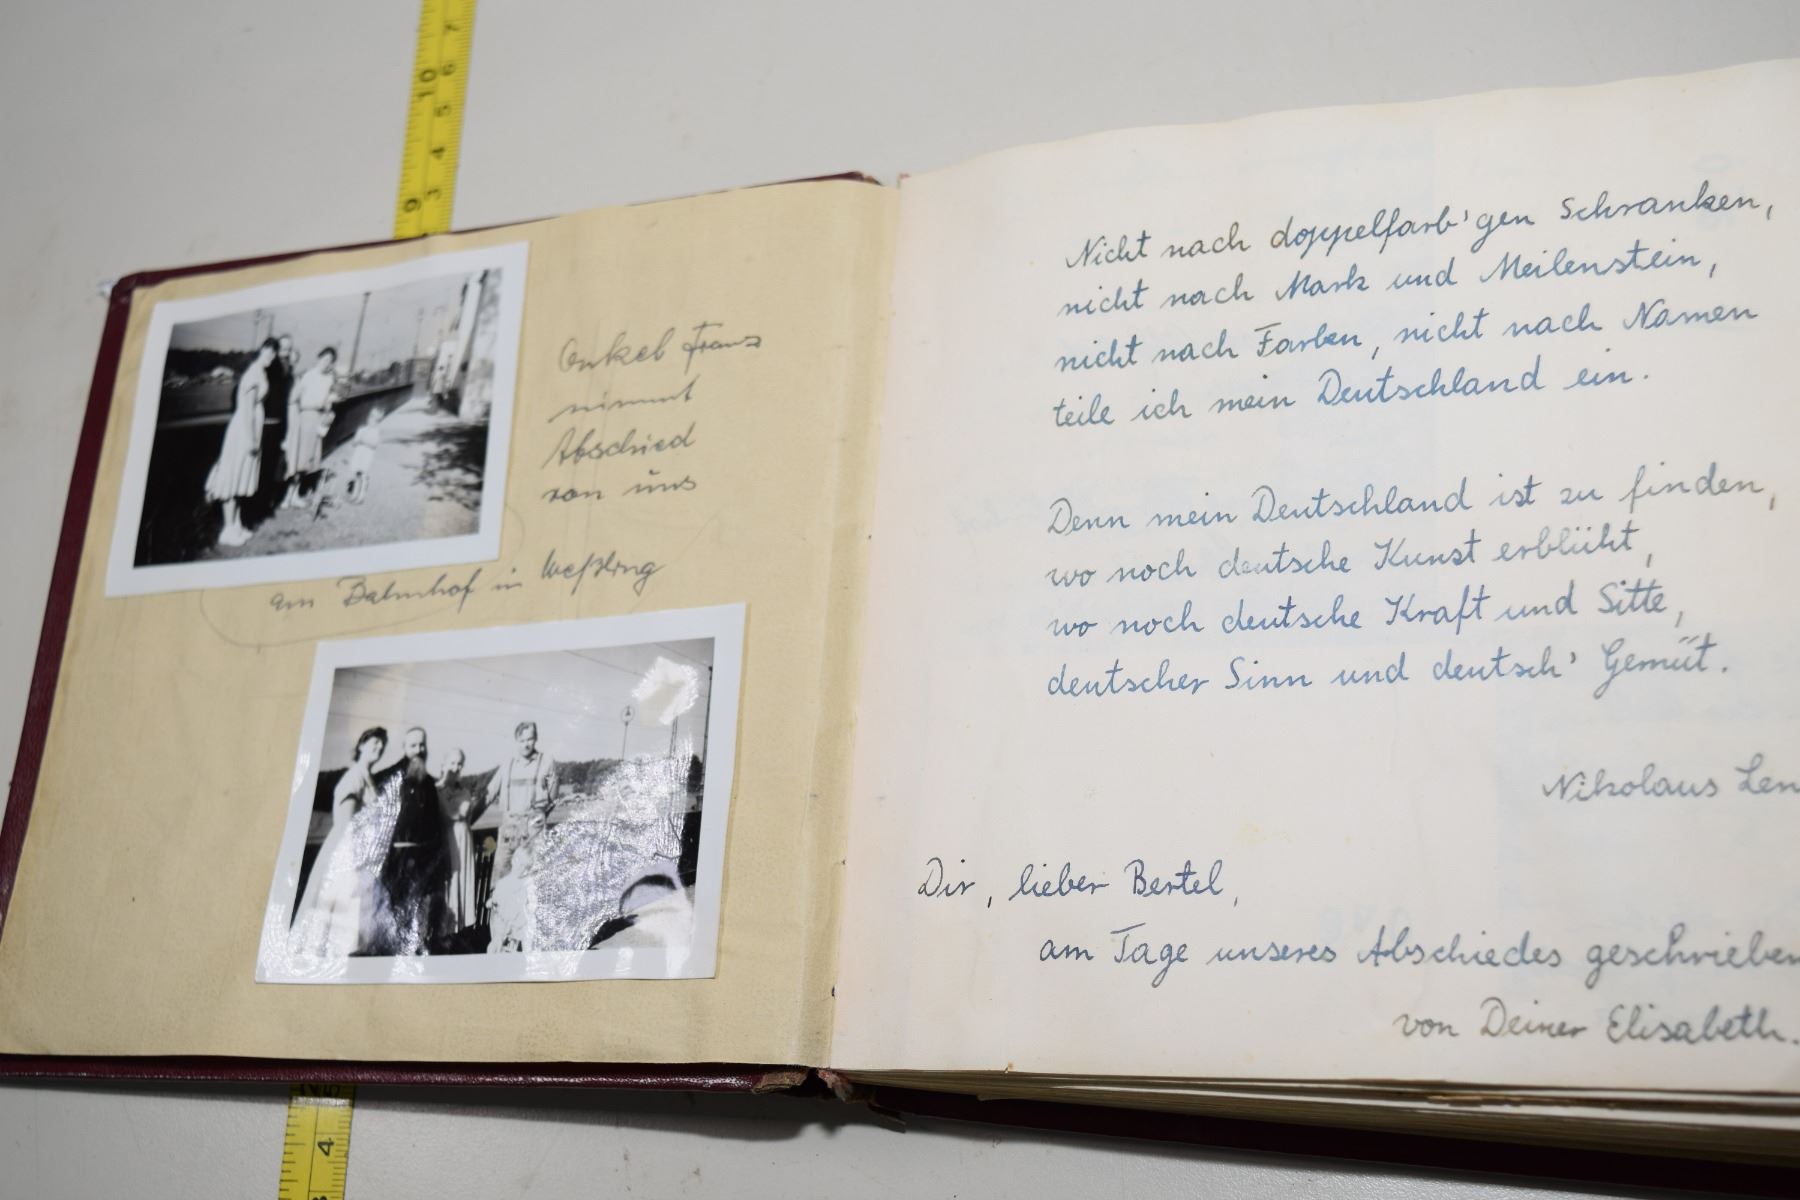 Onkel Franz
nimmt
Abschied
von uns
am Bahnhof in Weßling
Nicht nach doppelfarb'gen Schranken,
nicht nach Mark und Meilenstein,
nicht nach Farben, nicht nach Namen
teile ich mein Deutschland ein.
Denn mein Deutschland ist zu finden,
wo noch deutsche Kunst erblüht,
wo noch deutsche Kraft und Sitte,
deutscher Sinn und deutsch' Gemüt.
Nikolaus Len
Dir, lieber Bertel,
am Tage unseres Abschiedes geschrieben
von Deiner Elisabeth.
7
10
6
5
4
9
3
4